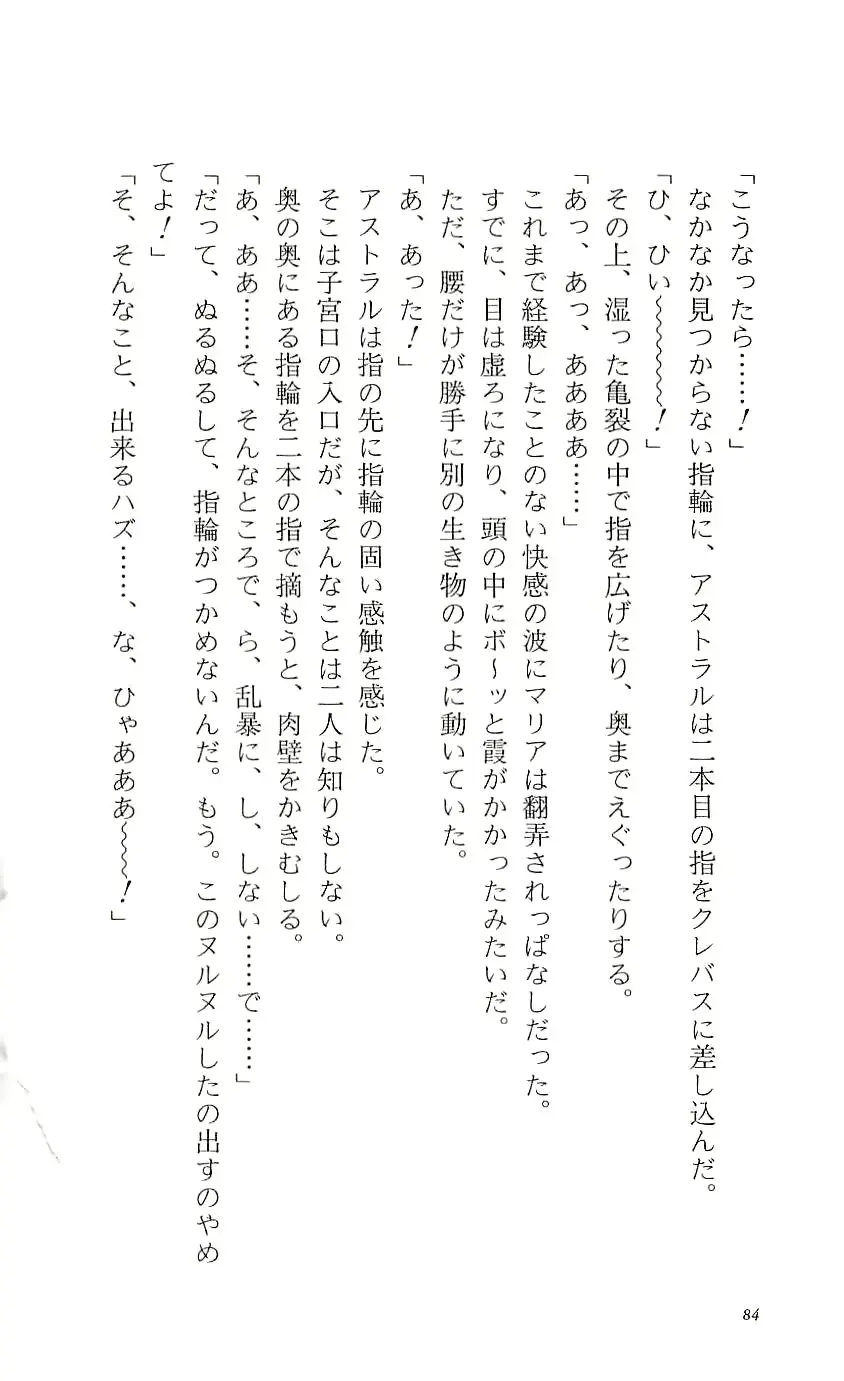 「こうなったら……！」
なかなか見つからない指輪に、アストラルは二本目の指をクレバスに差し込んだ。
「ひ、ひい～～～～～！」
その上、湿った亀裂の中で指を広げたり、奥までえぐったりする。
「あっ、あっ、ああああ……」
これまで経験したことのない快感の波にマリアは翻弄されっぱなしだった。
すでに、目は虚ろになり、頭の中にボ～ッと霞がかかったみたいだ。
ただ、腰だけが勝手に別の生き物のように動いていた。
「あ、あった！」
アストラルは指の先に指輪の固い感触を感じた。
そこは子宮口の入口だが、そんなことは二人は知りもしない。
奥の奥にある指輪を二本の指で摘もうと、肉壁をかきむしる。
「あ、ああ……そ、そんなところで、ら、乱暴に、し、しない……で……」
「だって、ぬるぬるして、指輪がつかめないんだ。もう。このヌルヌルしたの出すのやめ
てよ！」
「そ、そんなこと、出来るハズ……、な、ひゃあああ～～～！」
84